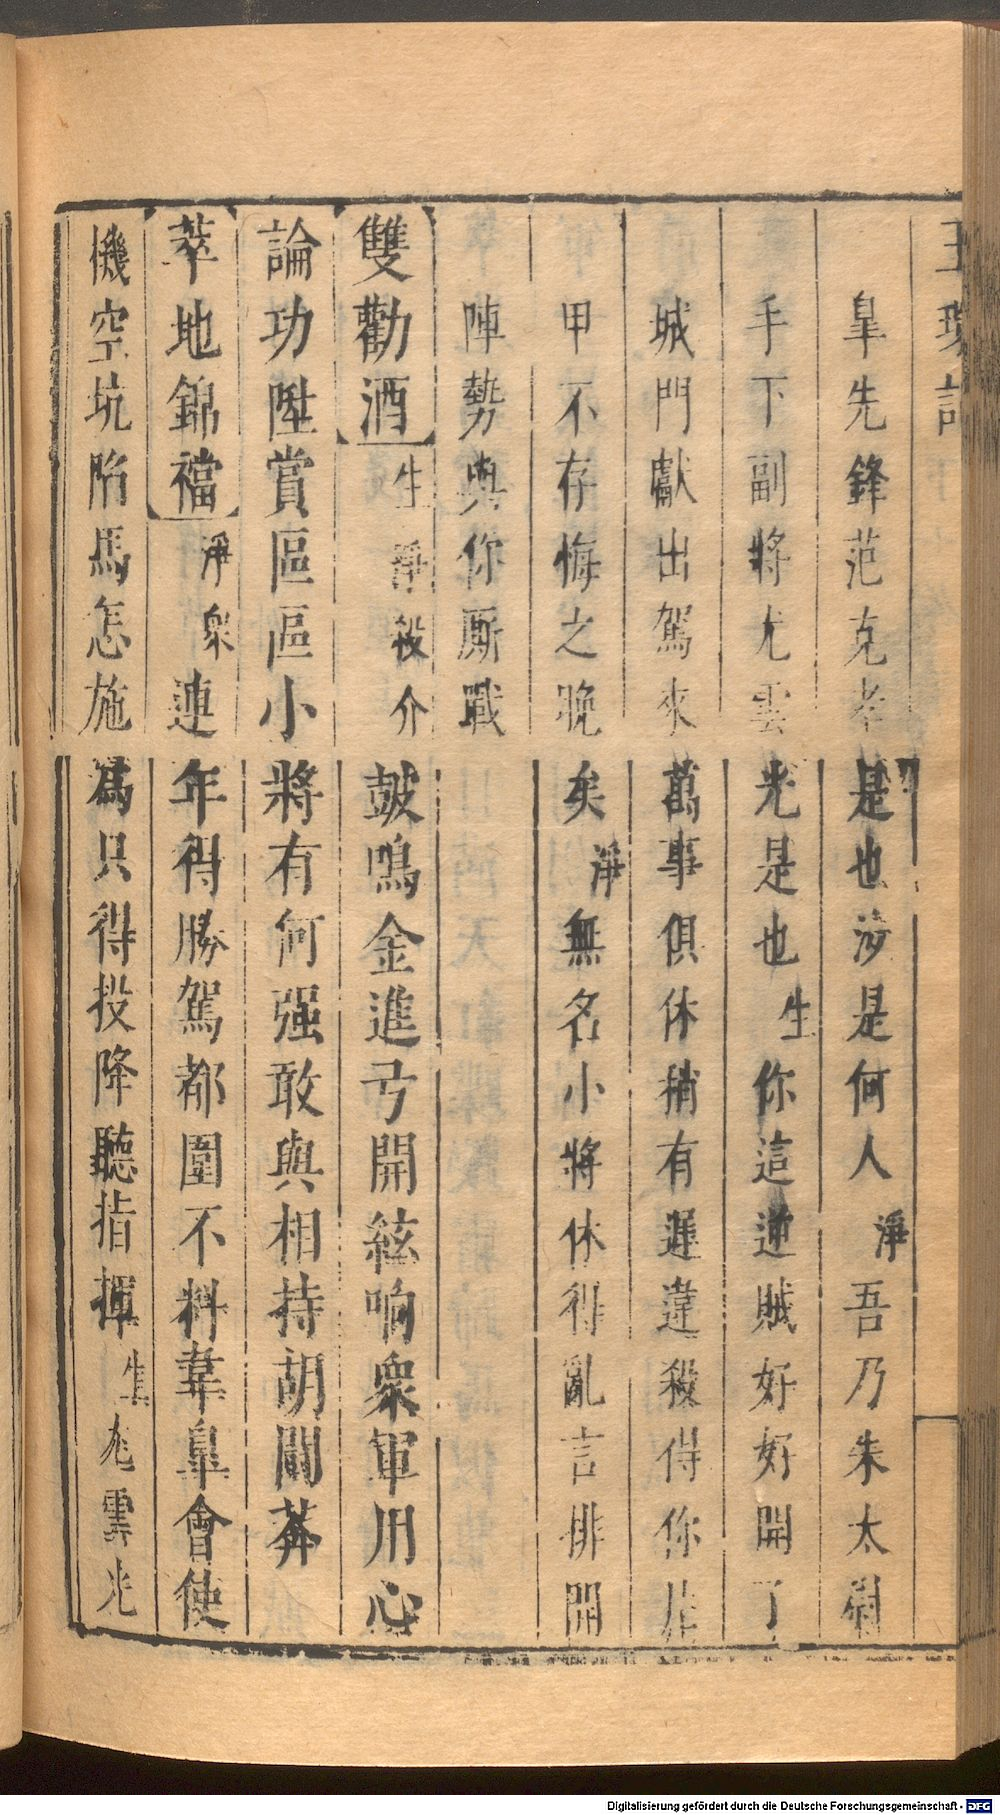 玉環記
臯先鋒范克孝是也汝是何人淨吾乃朱太尉
手下副將尤雲光是也生你這逆賊好好開了
城門獻出駕來萬事俱休稍有遲違殺得你片
甲不存悔之晚矣淨無名小將休得亂言排開
陣勢與你厮戰
雙勸酒生淨殺介皷鳴金進弓開絃响衆軍用心
論功陞賞區區小將有何强敢與相持胡鬬莽
萃地錦襠淨衆連年得勝駕都圍不料韋臯會使
機空坑陷馬怎施為只得投降聽指揮生尤雲光
Digitalisierung gefördert durch die Deutsche Forschungsgemeinschaft - DFG